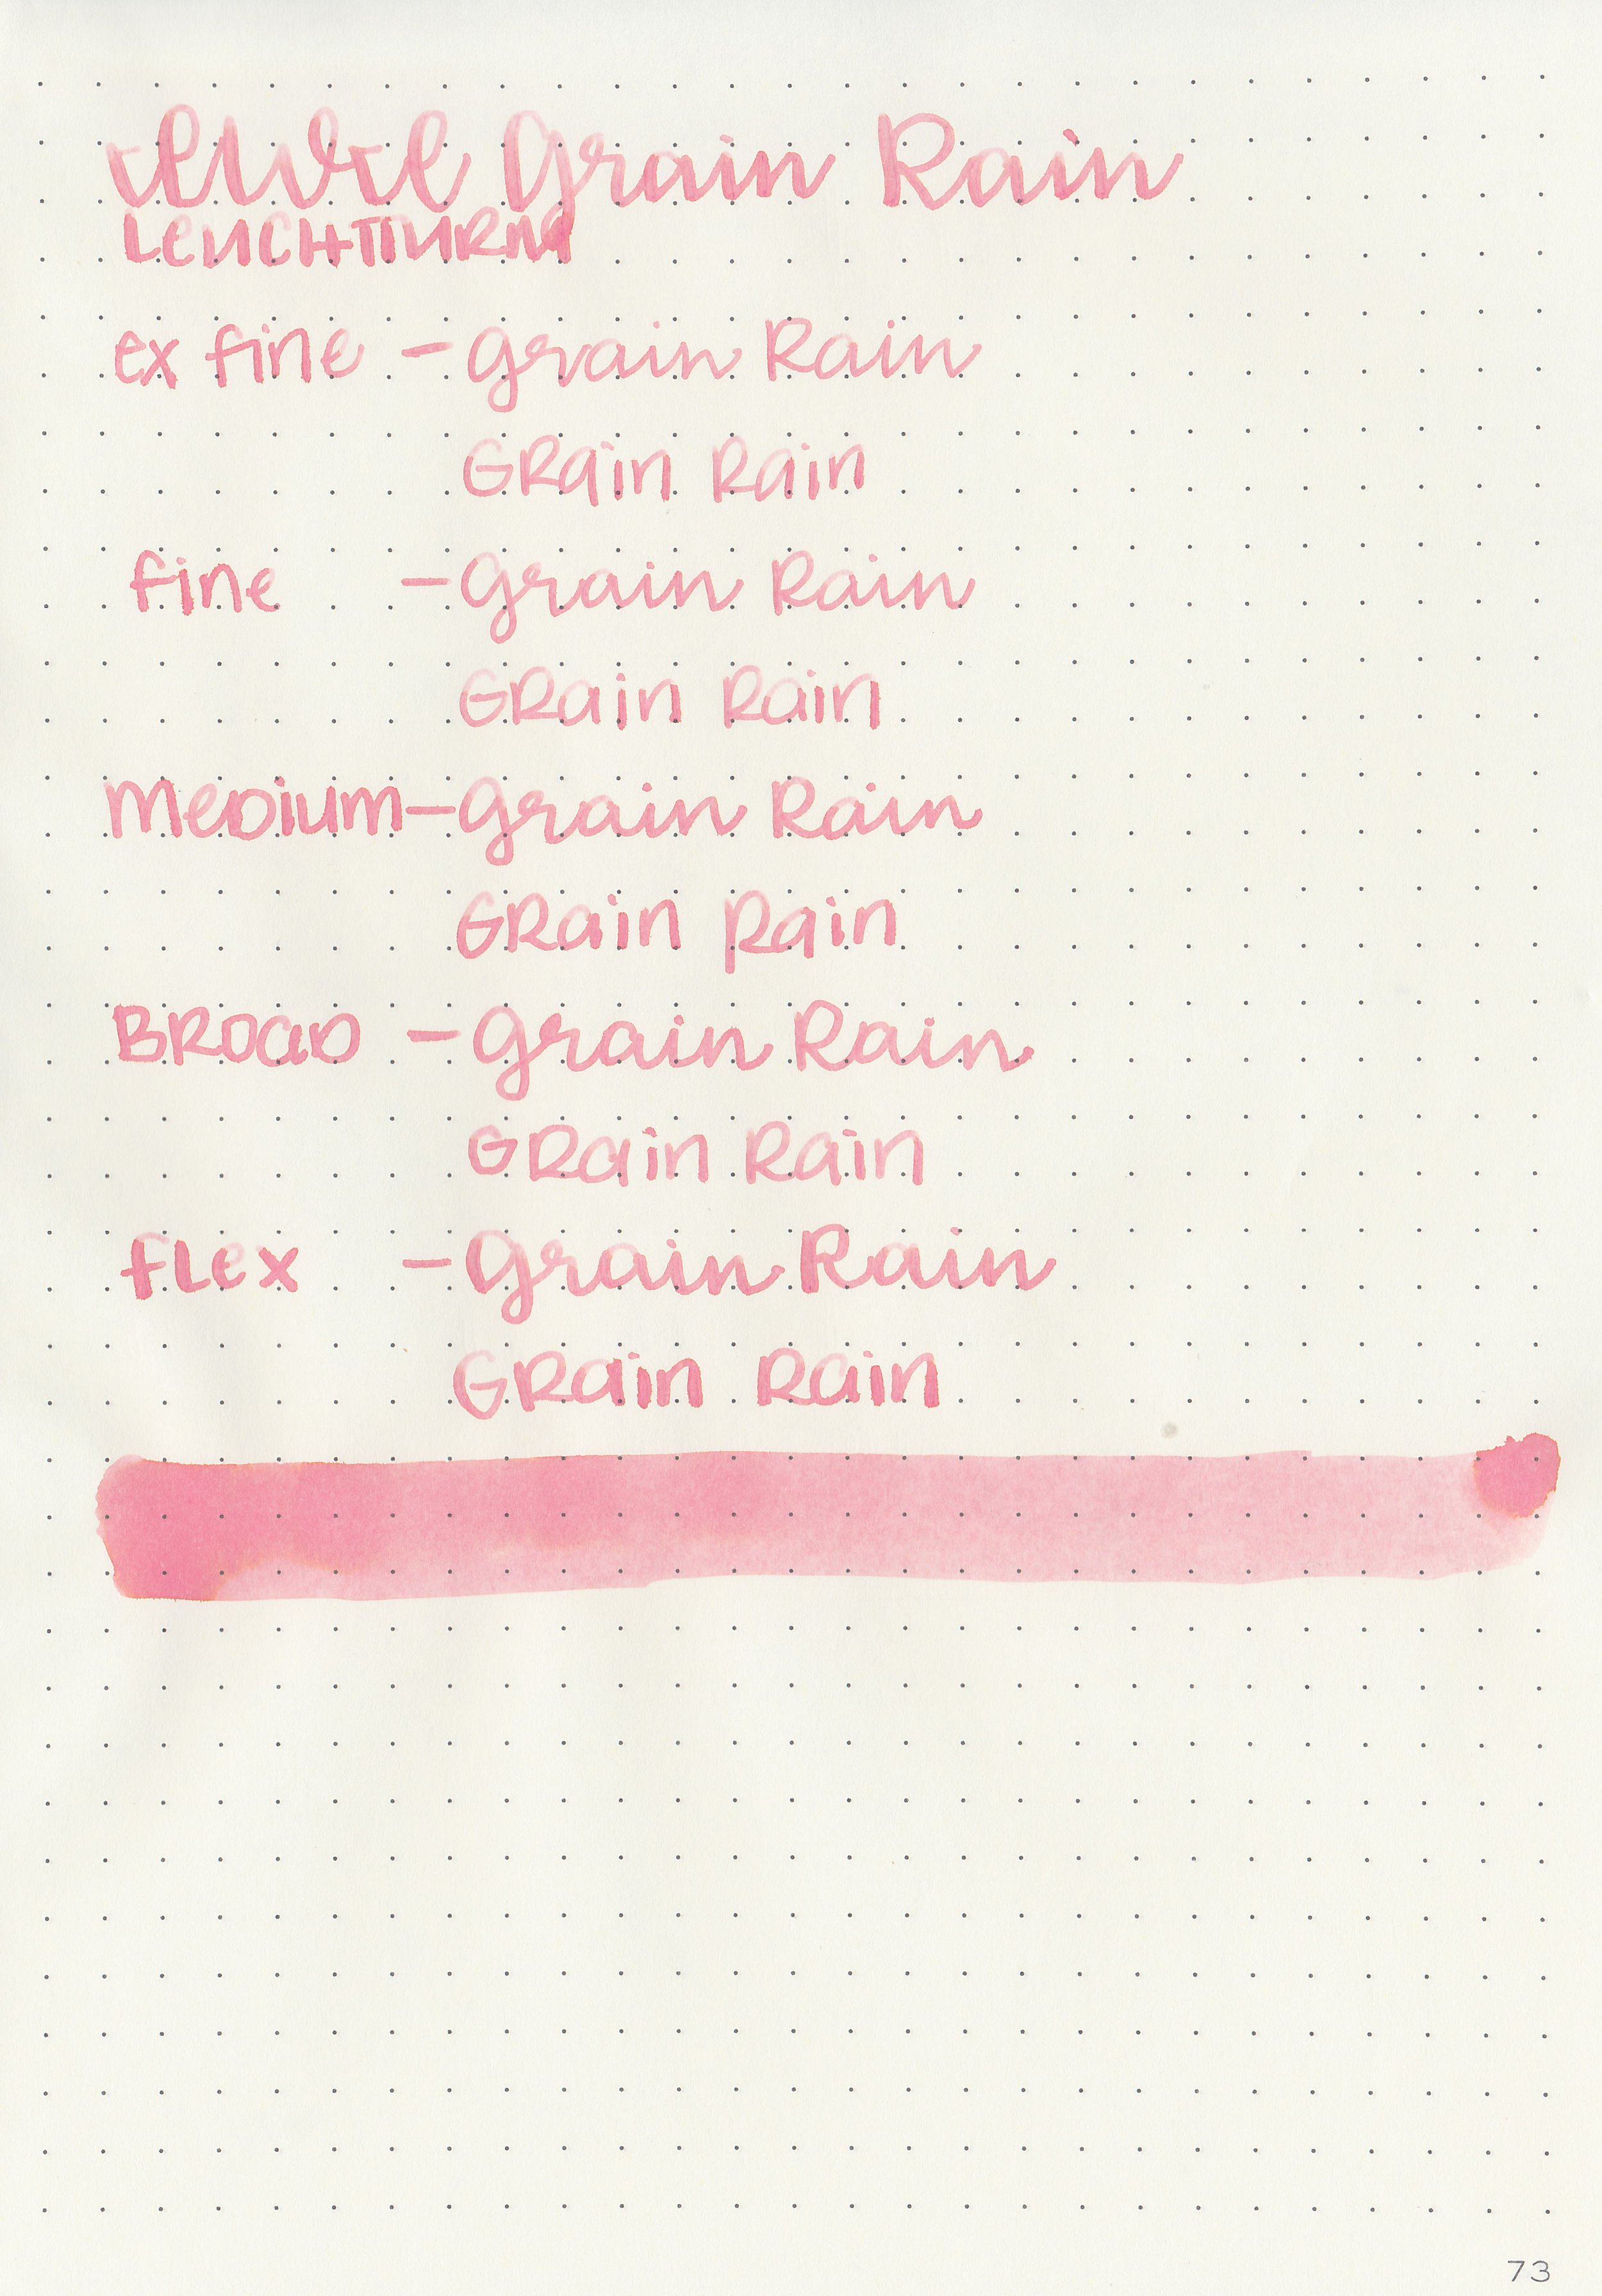 IWI Grain Rain
LEUCHTTURM
ex fine - Grain Rain
Grain Rain
fine - Grain Rain
Grain Rain
Medium - Grain Rain
Grain Rain
Broad - Grain Rain
Grain Rain
flex - Grain Rain
Grain Rain
73